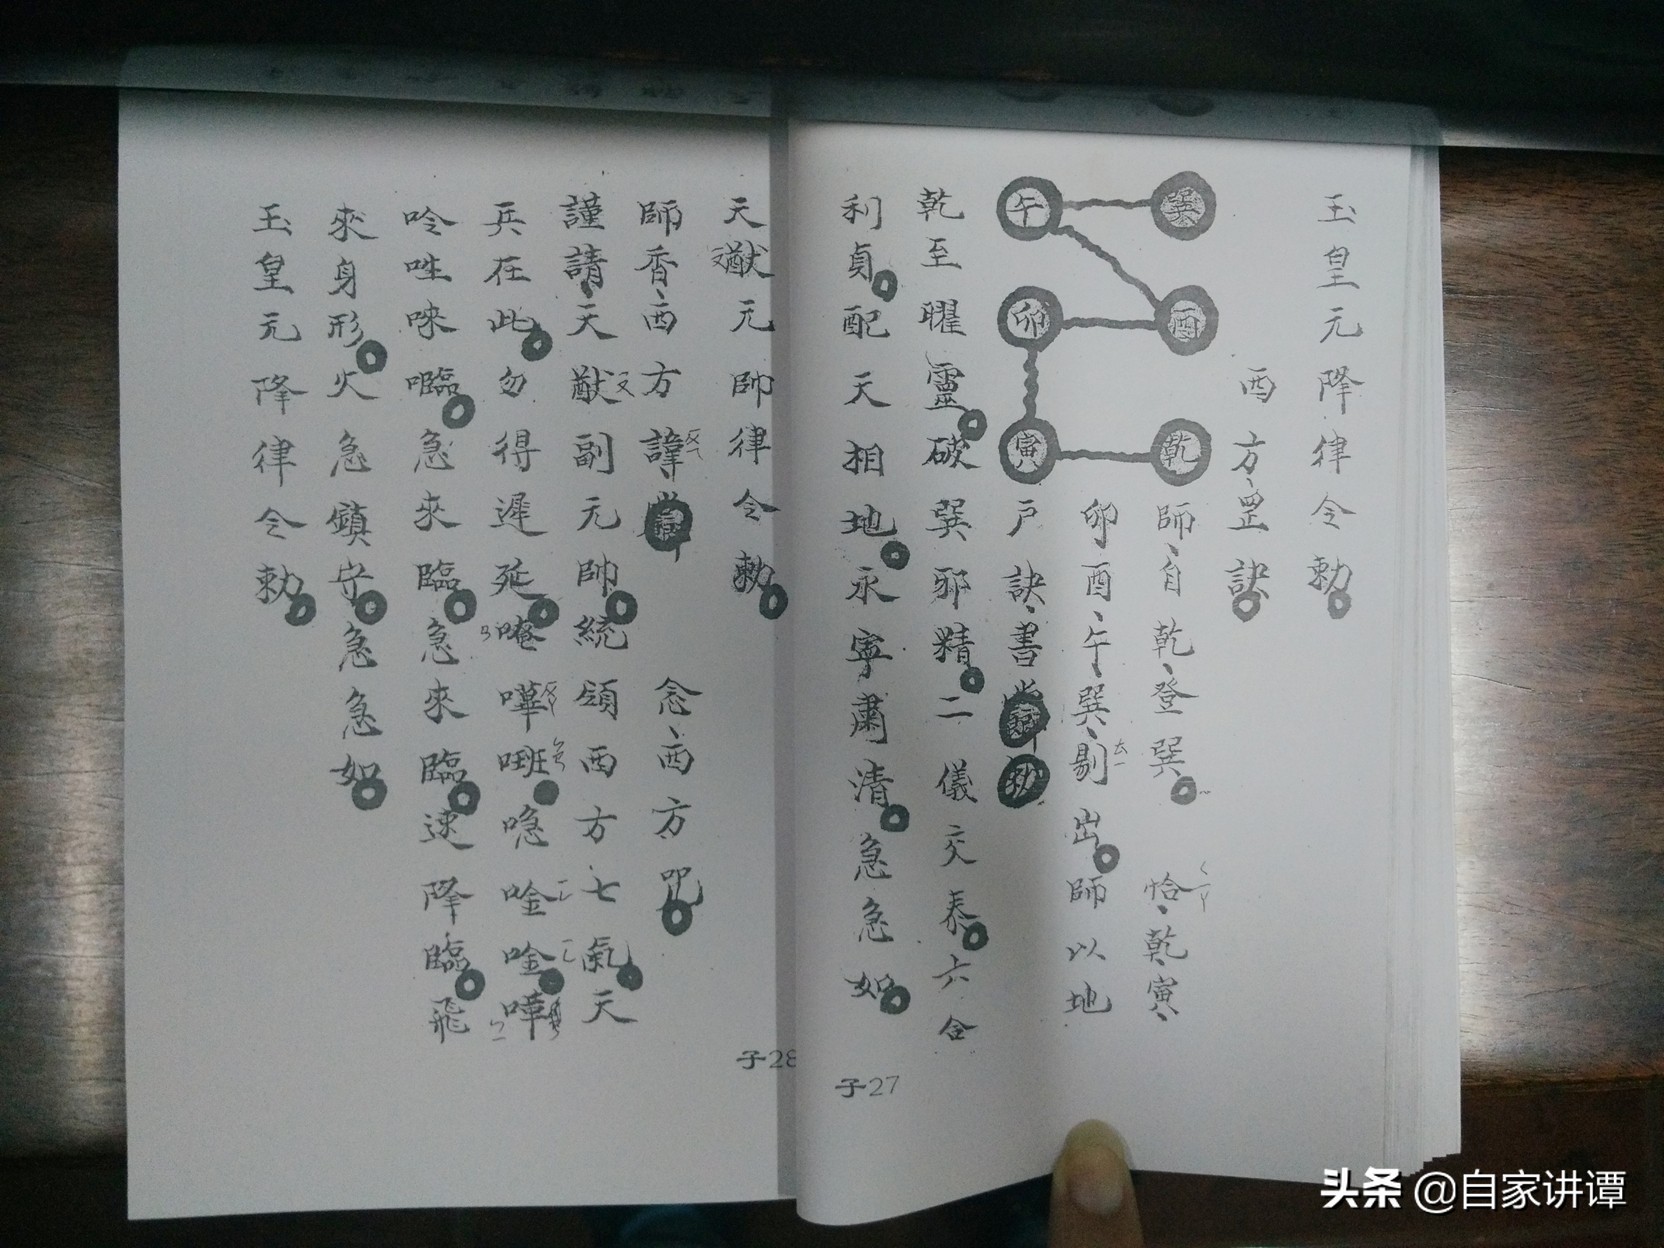 玉皇元降律令勅
西方罡訣
巽
午
酉
卯
乾
寅
師自乾登巽 恰乾寅
卯酉午巽剔出師以地
戶訣書
乾至曜靈破巽邪精二儀交泰六合
利貞配天相地永寧肅清急急如
子27
天猷元帥律令勅
師香西方諱 念西方咒
謹請天猷副元帥統領西方七氣天
兵在此勿得遲延唵嘩㘄喼唫唫嘩
唥㕽唻㘋急來臨急來臨速降臨飛
來身形火急鎮守急急如
玉皇元降律令勅
子28
头条 @自家讲谭